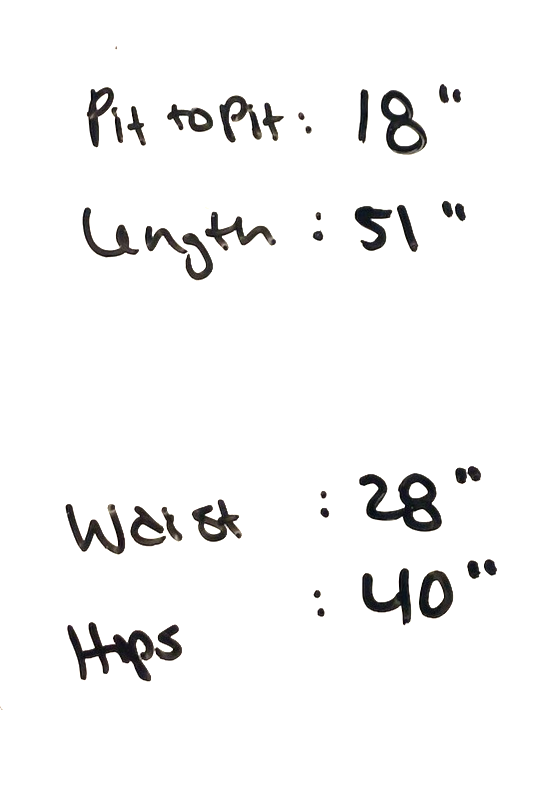 Pit to Pit: 18"
Length : 51"
Waist : 28"
Hips : 40"